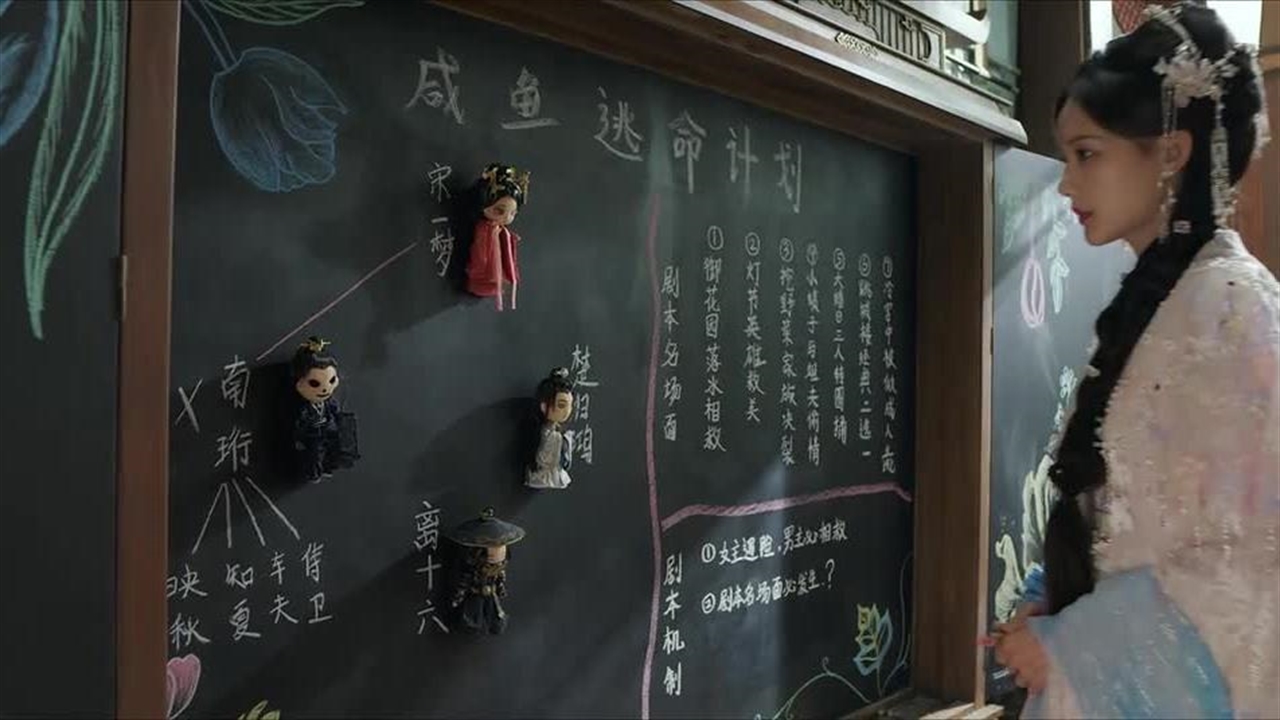 咸鱼逃命计划
宋一梦
南珩
X
映秋
知夏
车夫
侍卫
楚归鸿
离十六
剧本名场面
①御花园落水相救
②灯节英雄救美
③挖野菜家破决裂
④小娘子与姐夫偷情
⑤大婚日三人转圈捅
⑥跳城楼经典二选一
⑦冷宫中被做成人彘
剧本机制
①女主遇险,男主必相救
②剧本名场面必发生?